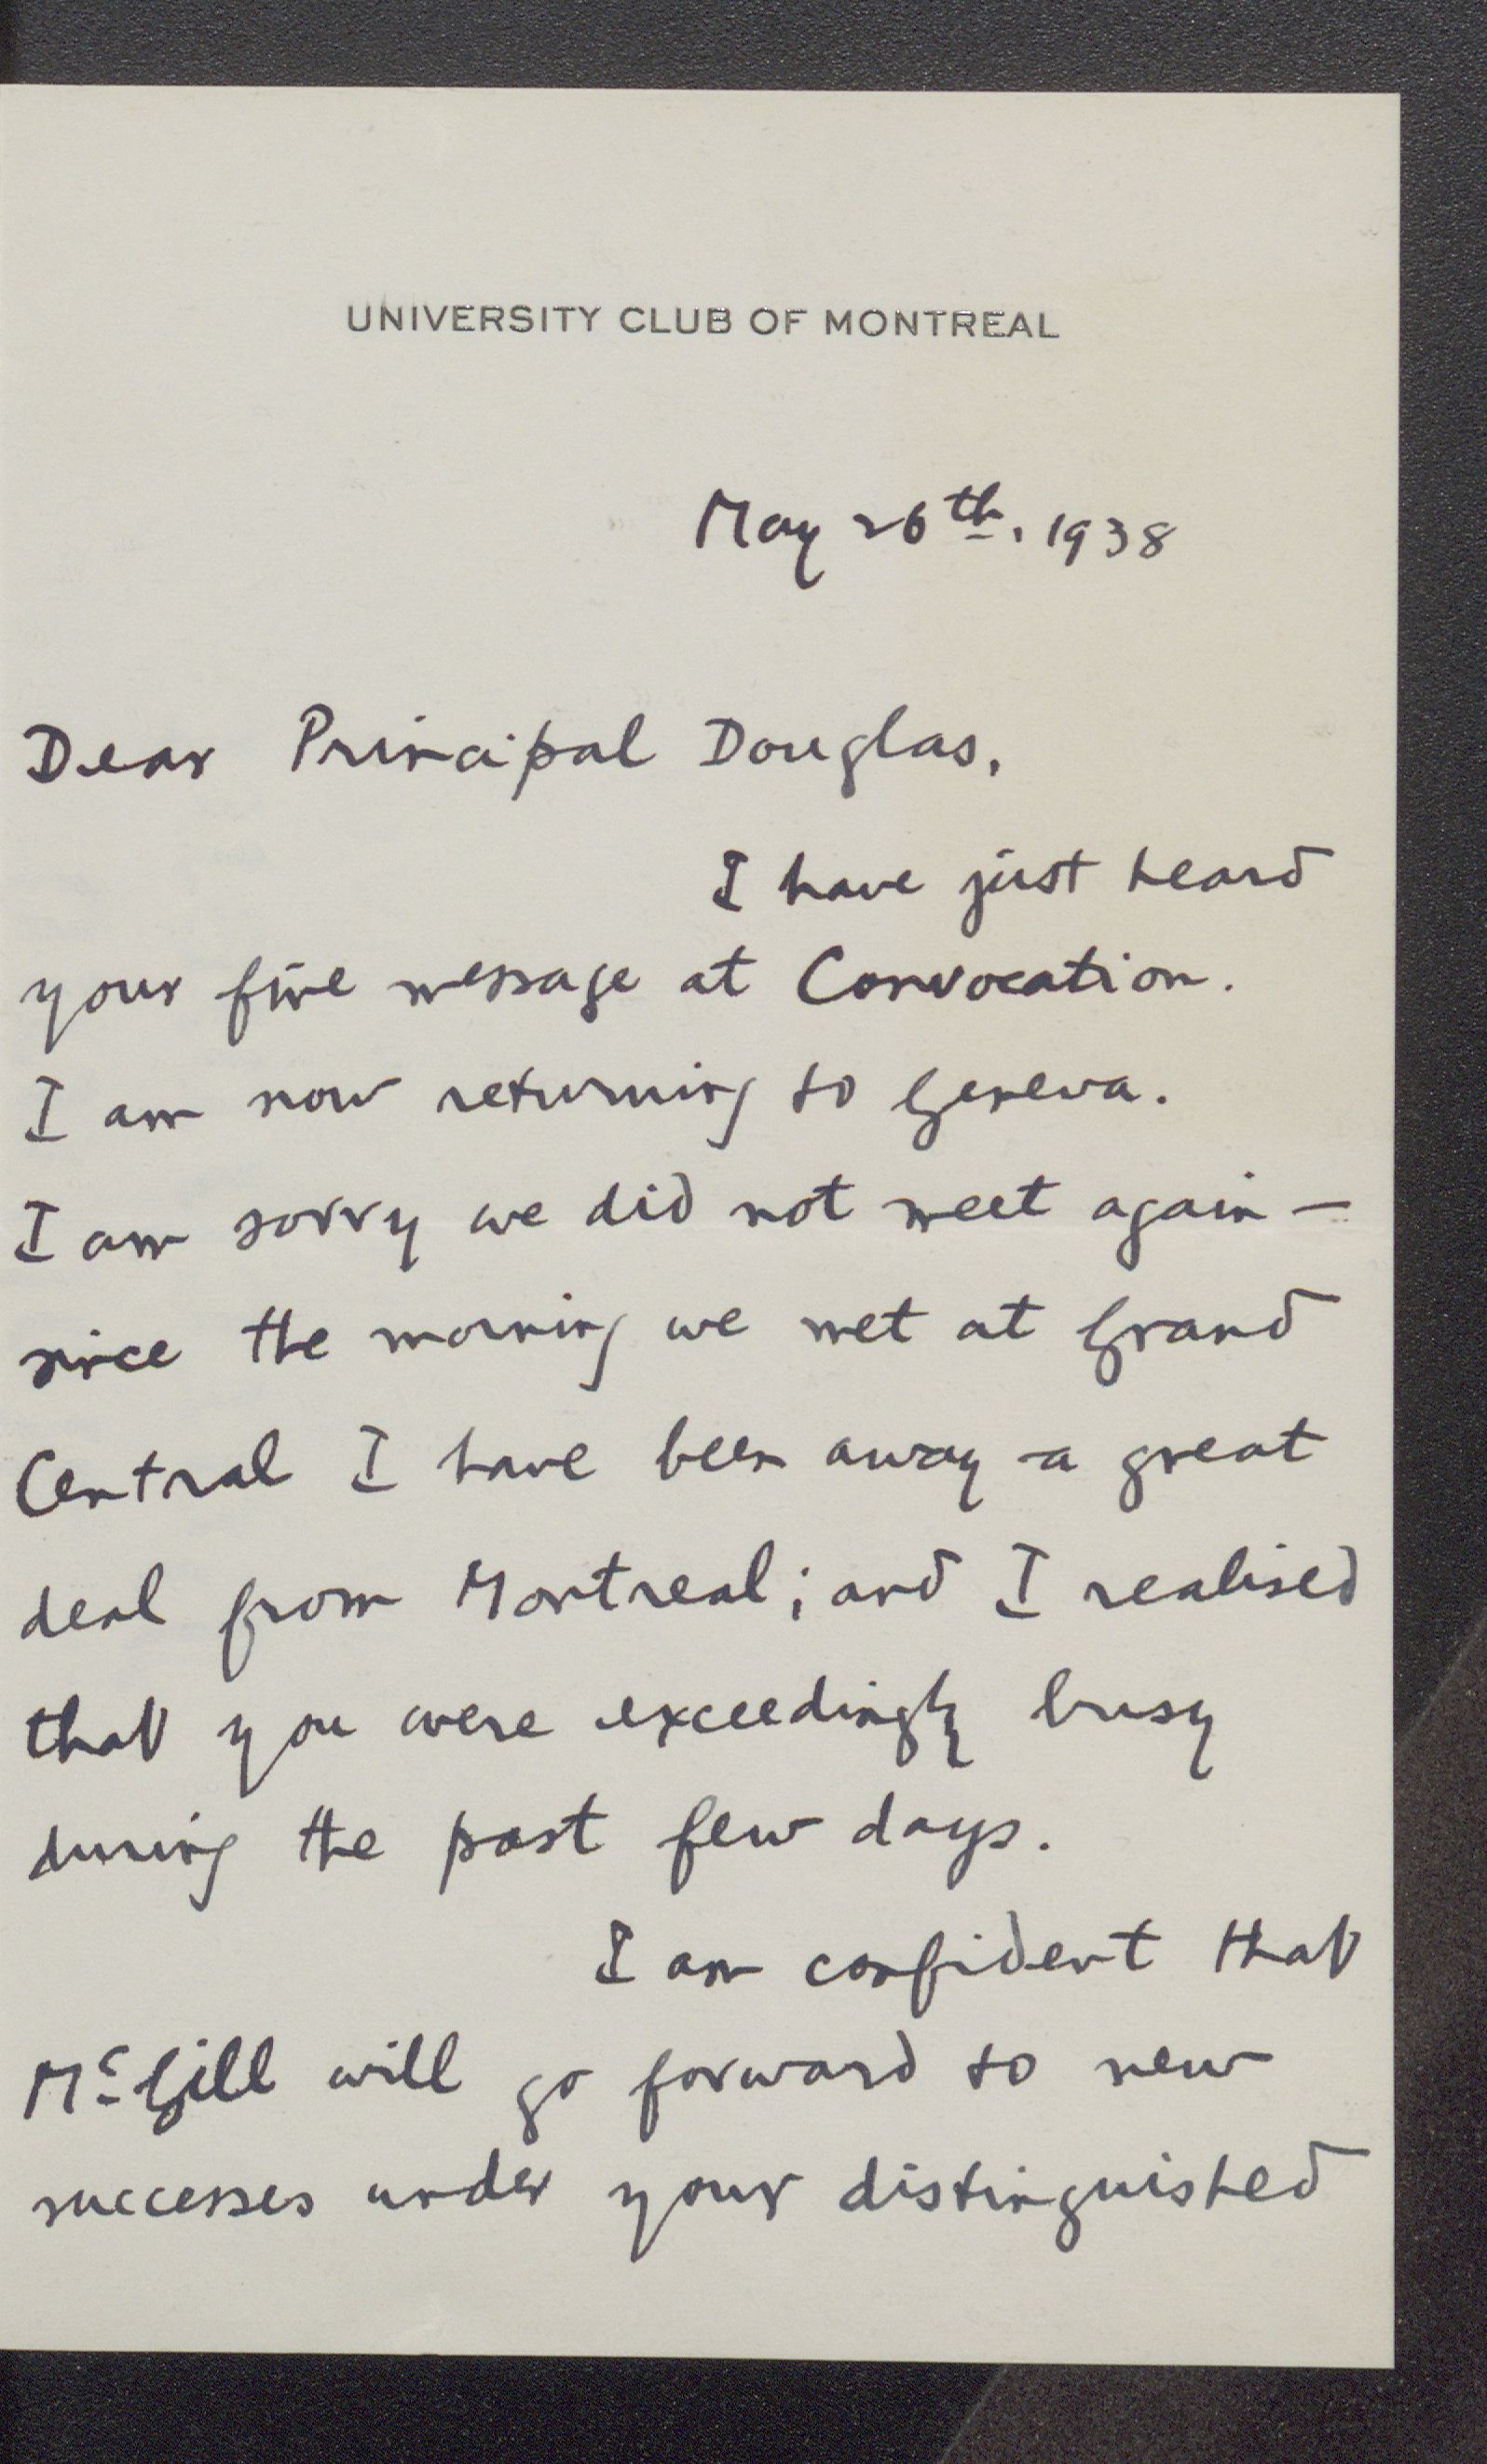 UNIVERSITY CLUB OF MONTREAL
May 26th, 1938
Dear Principal Douglas,
I have just heard
your fine message at Convocation.
I am now returning to Geneva.
I am sorry we did not meet again —
since the morning we met at Grand
Central I have been away a great
deal from Montreal; and I realised
that you were exceedingly busy
during the past few days.
I am confident that
McGill will go forward to new
successes under your distinguished